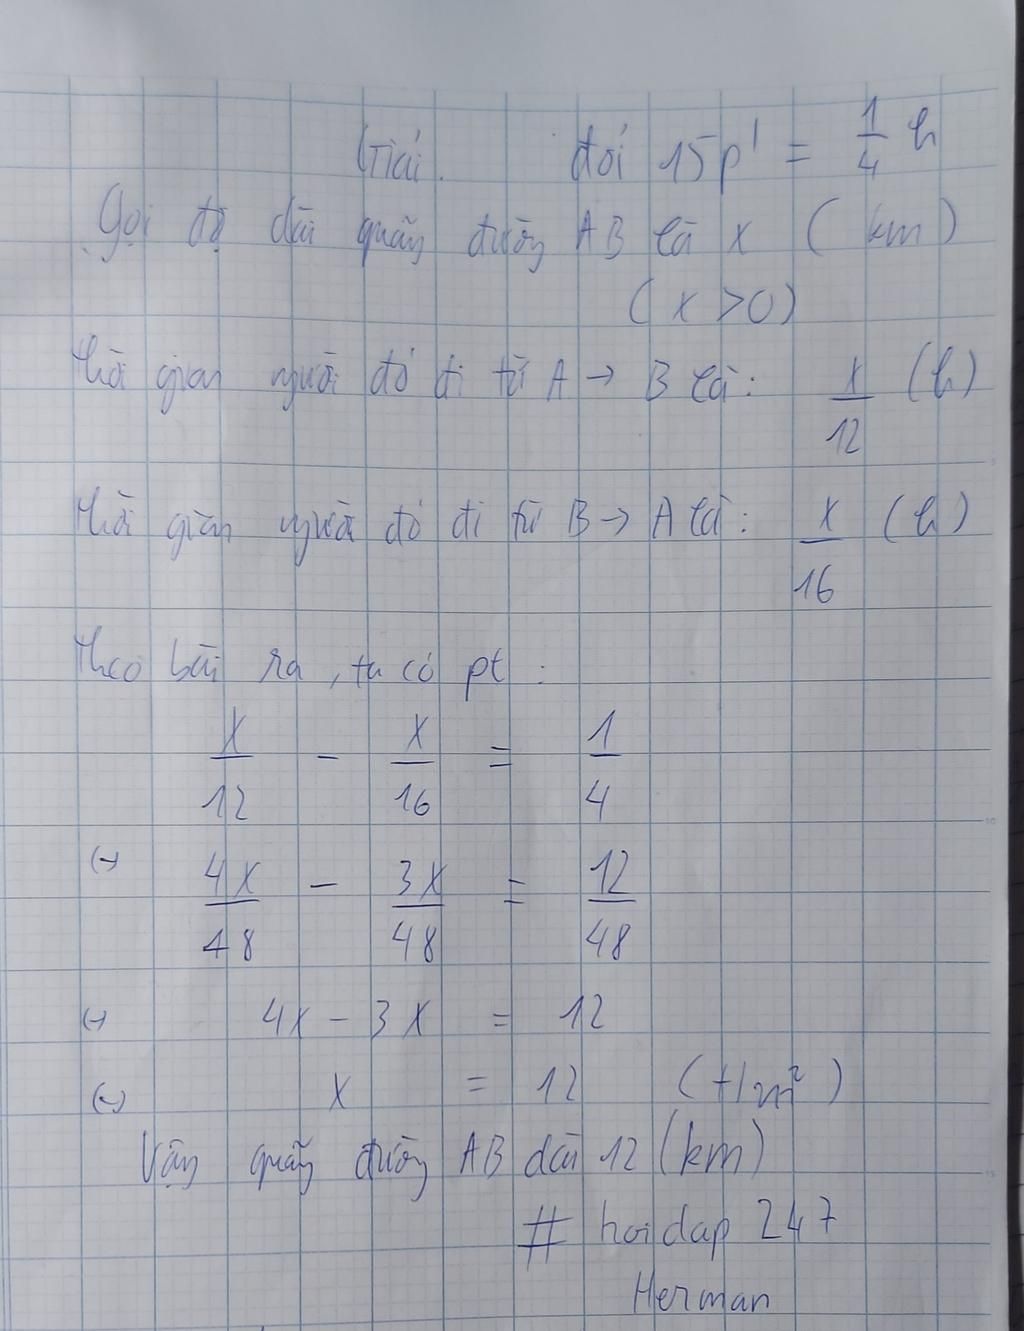 Giải. đổi 15p' = 1/4 h
Gọi độ dài quãng đường AB là x (km)
(x > 0)
Thời gian người đó đi từ A → B là: x/12 (h)
Thời gian người đó đi từ B → A là: x/16 (h)
Theo bài ra, ta có pt:
x/12 - x/16 = 1/4
(-) 4x/48 - 3x/48 = 12/48
(-) 4x - 3x = 12
(-) x = 12
Vậy quãng đường AB dài 12 (km)
# hoidap 247
Herman